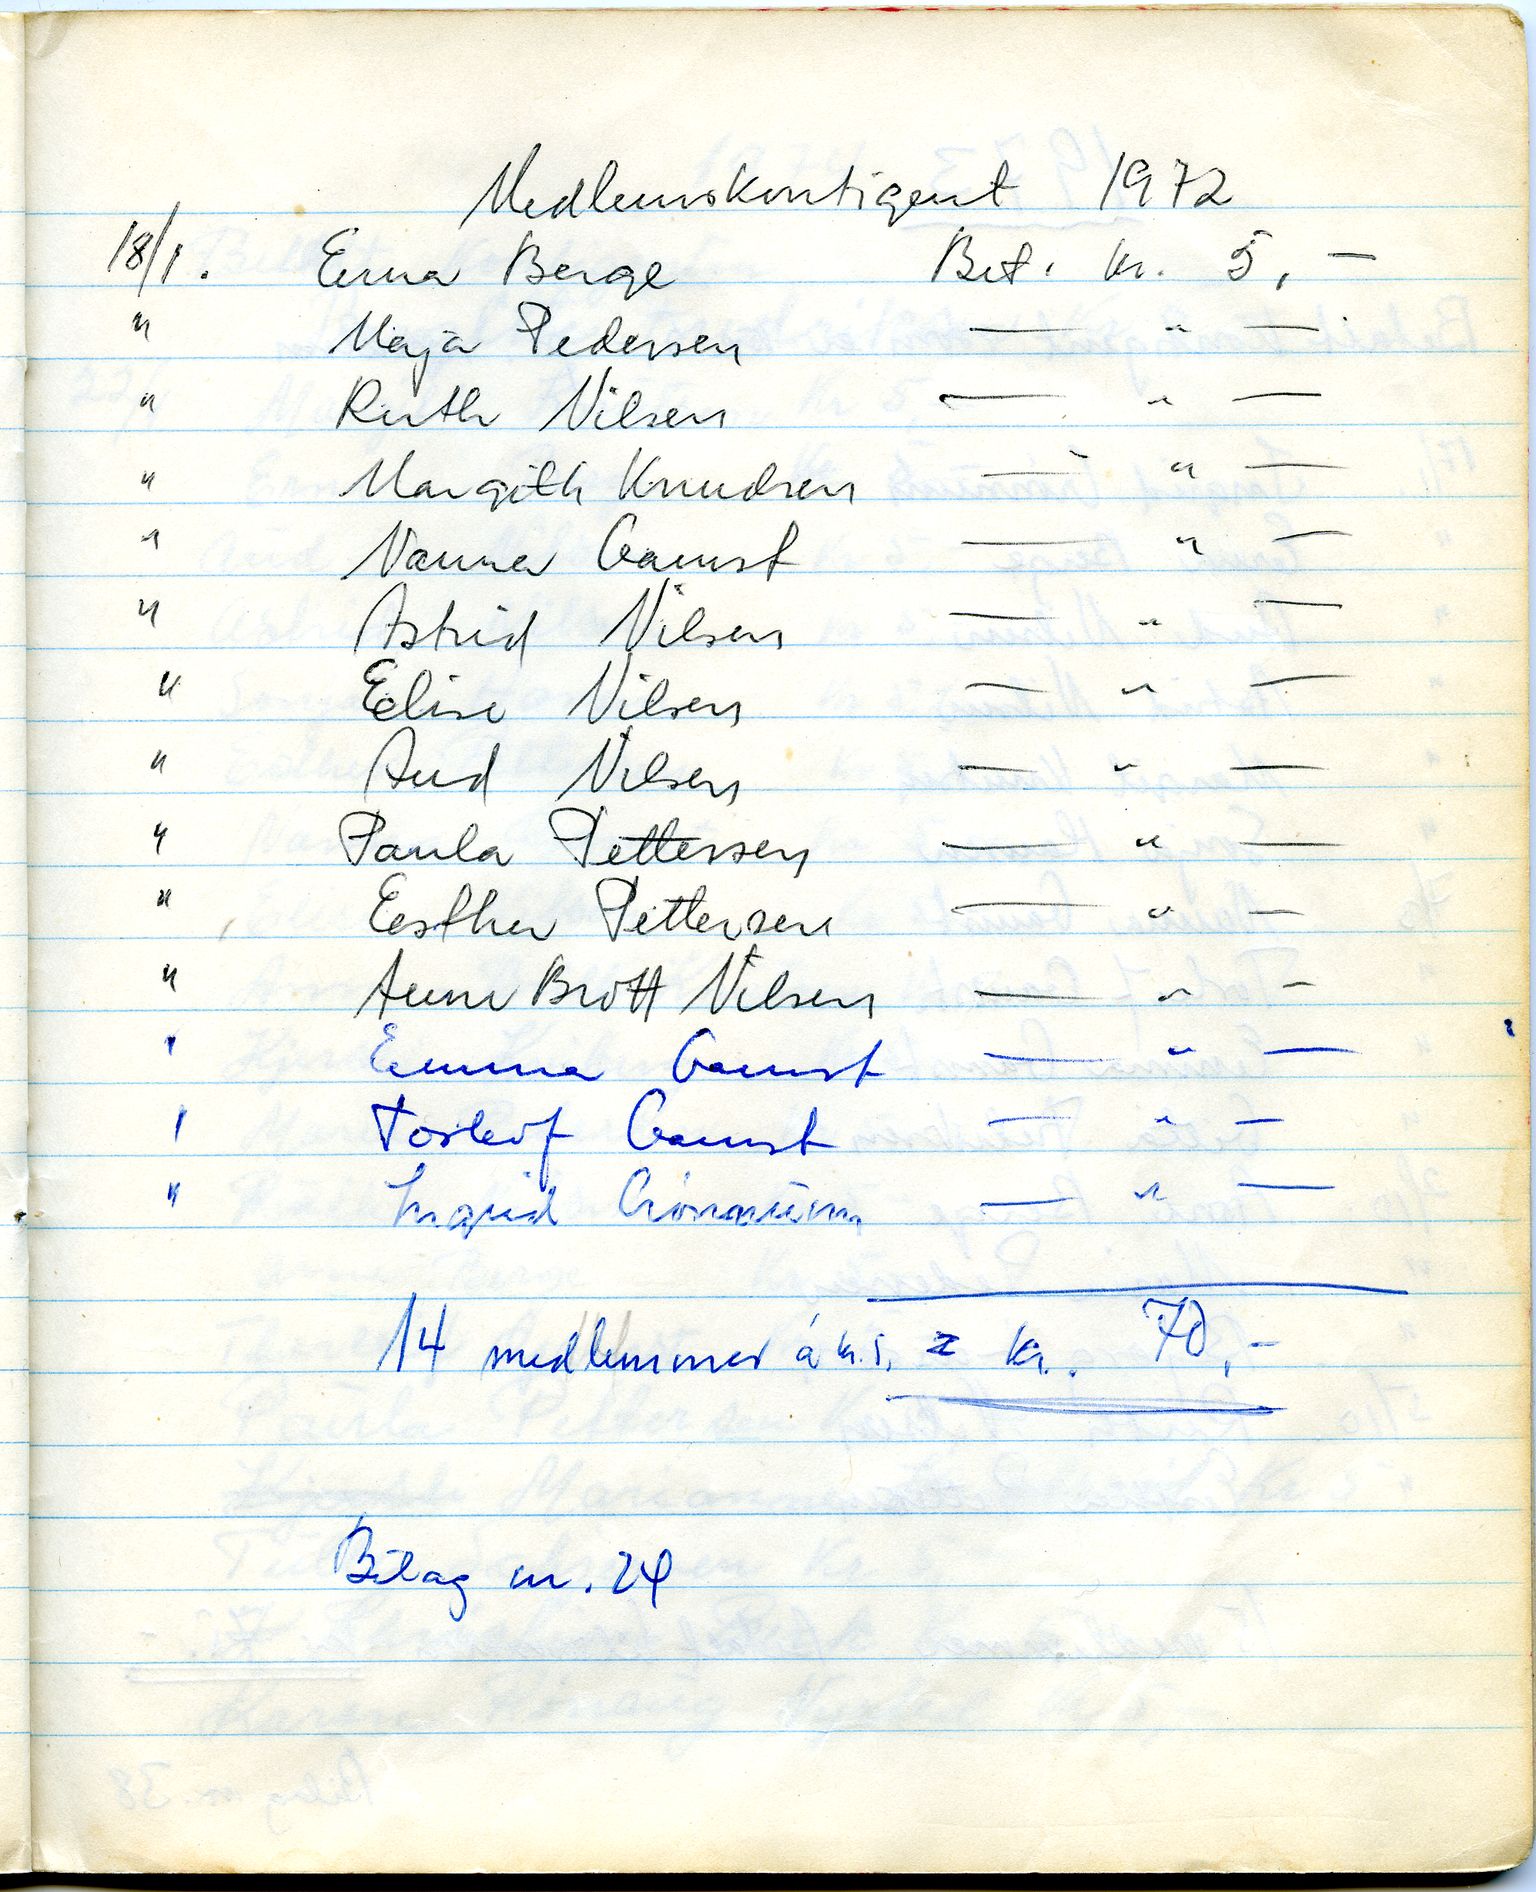 Medlemskontigent 1972
18/1. Erna Berge Bet. kr. 5,-
" Maja Pedersen — " —
" Ruth Nilsen — " —
" Margith Knudsen — " —
" Nanna Gamst — " —
" Astrid Nilsen — " —
" Elise Nilsen — " —
" Aud Nilsen — " —
" Paula Pettersen — " —
" Esther Pettersen — " —
" Anne Brott Nilsen — " —
" Emma Gamst — " —
" Torleif Gamst — " —
" Ingrid — " —
14 medlemmer á kr. 5, = kr. 70,-
Bilag nr. 24